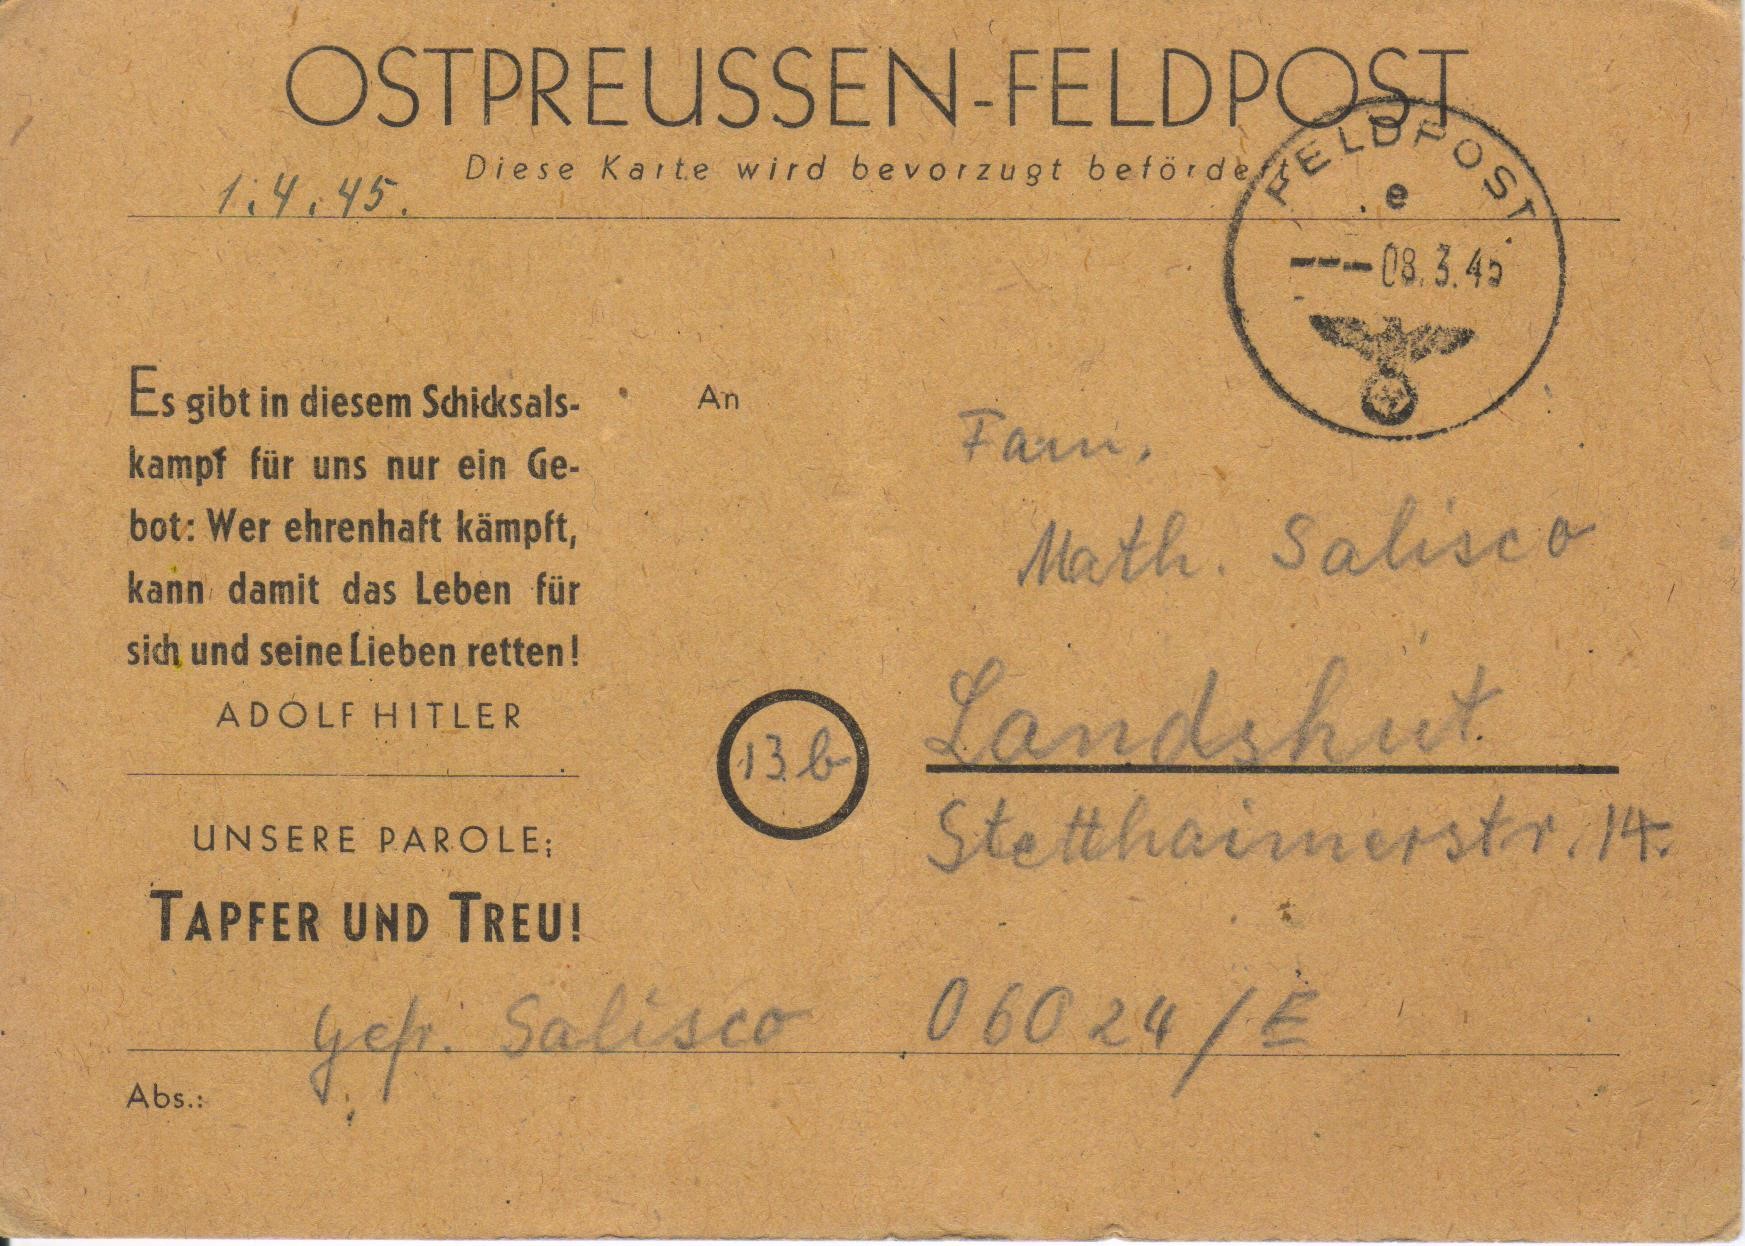 OSTPREUSSEN-FELDPOST
Diese Karte wird bevorzugt befördert
1.4.45.
FELDPOST
e
---08.3.45
Es gibt in diesem Schicksals-
kampf für uns nur ein Ge-
bot: Wer ehrenhaft kämpft,
kann damit das Leben für
sich und seine Lieben retten!
ADOLF HITLER
UNSERE PAROLE:
TAPFER UND TREU!
An
Fam.
Math. Salisco
13b
Landshut
Stetthaimerstr. 14.
Gefr. Salisco 06024/E
Abs.: